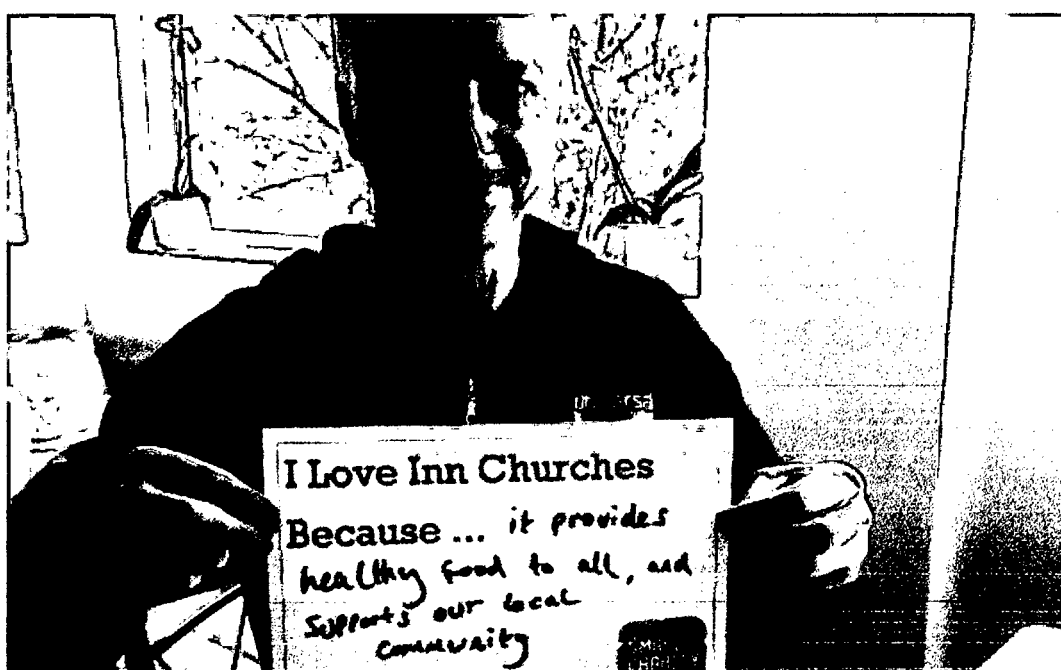 I Love Inn Churches
Because ... it provides
healthy food to all, and
supports our local
community